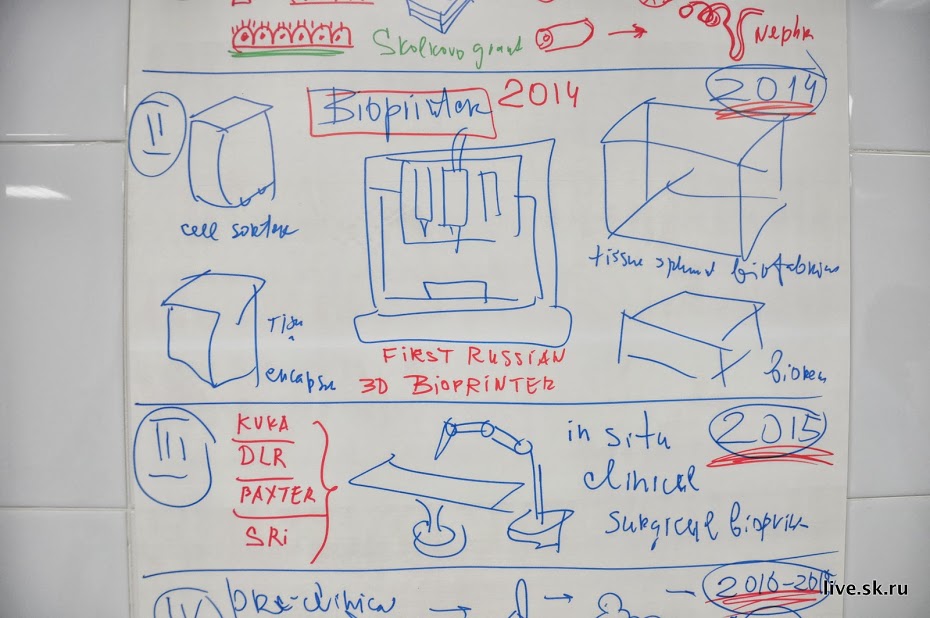 Skolkovo grant
Nephr
II
Bioprinter
2014
2014
cell sorter
tissue spheroid biofabricator
Tissu
encapsu
FIRST RUSSIAN
3D BIOPRINTER
III
KUKA
DLR
BAXTER
SRi
in situ
clinical
surgical bioprin
2015
IV
pre-clinical
live.sk.ru